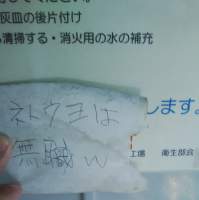 ださい。
灰皿の後片付け
清掃する・消火用の水の補充
ネトウヨは
します。
無職w
工場 衛生部会